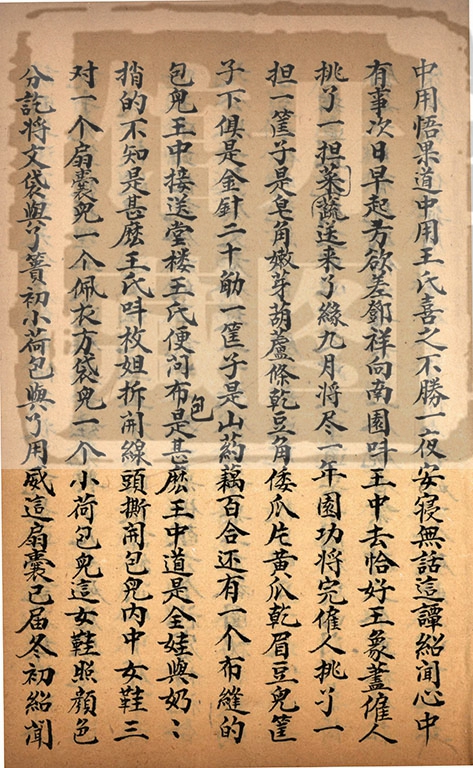 中用悟果道中用王氏喜之不勝一夜安寝無話這譚紹聞心中
有事次日早起方欲差鄧祥向南園呌王中去恰好王象藎僱人
挑了一担菜蔬送来了緣九月将尽一年園功将完僱人挑了一
担一筐子是皂角嫩芽胡蘆條乾豆角倭瓜片黄瓜乾眉豆兒筐
子下俱是金針二十觔一筐子是山药藕百合还有一个布縫的
包兒王中接送堂楼王氏便问布包是甚麽王中道是全娃與奶〻
捎的不知是甚麽王氏呌枚姐拆開線頭撕開包兒内中女鞋三
对一个扇囊兒一个佩衣方袋兒一个小荷包兒這女鞋照顔色
分訖将文袋與了簣初小荷包與了用威這扇囊已届冬初紹聞